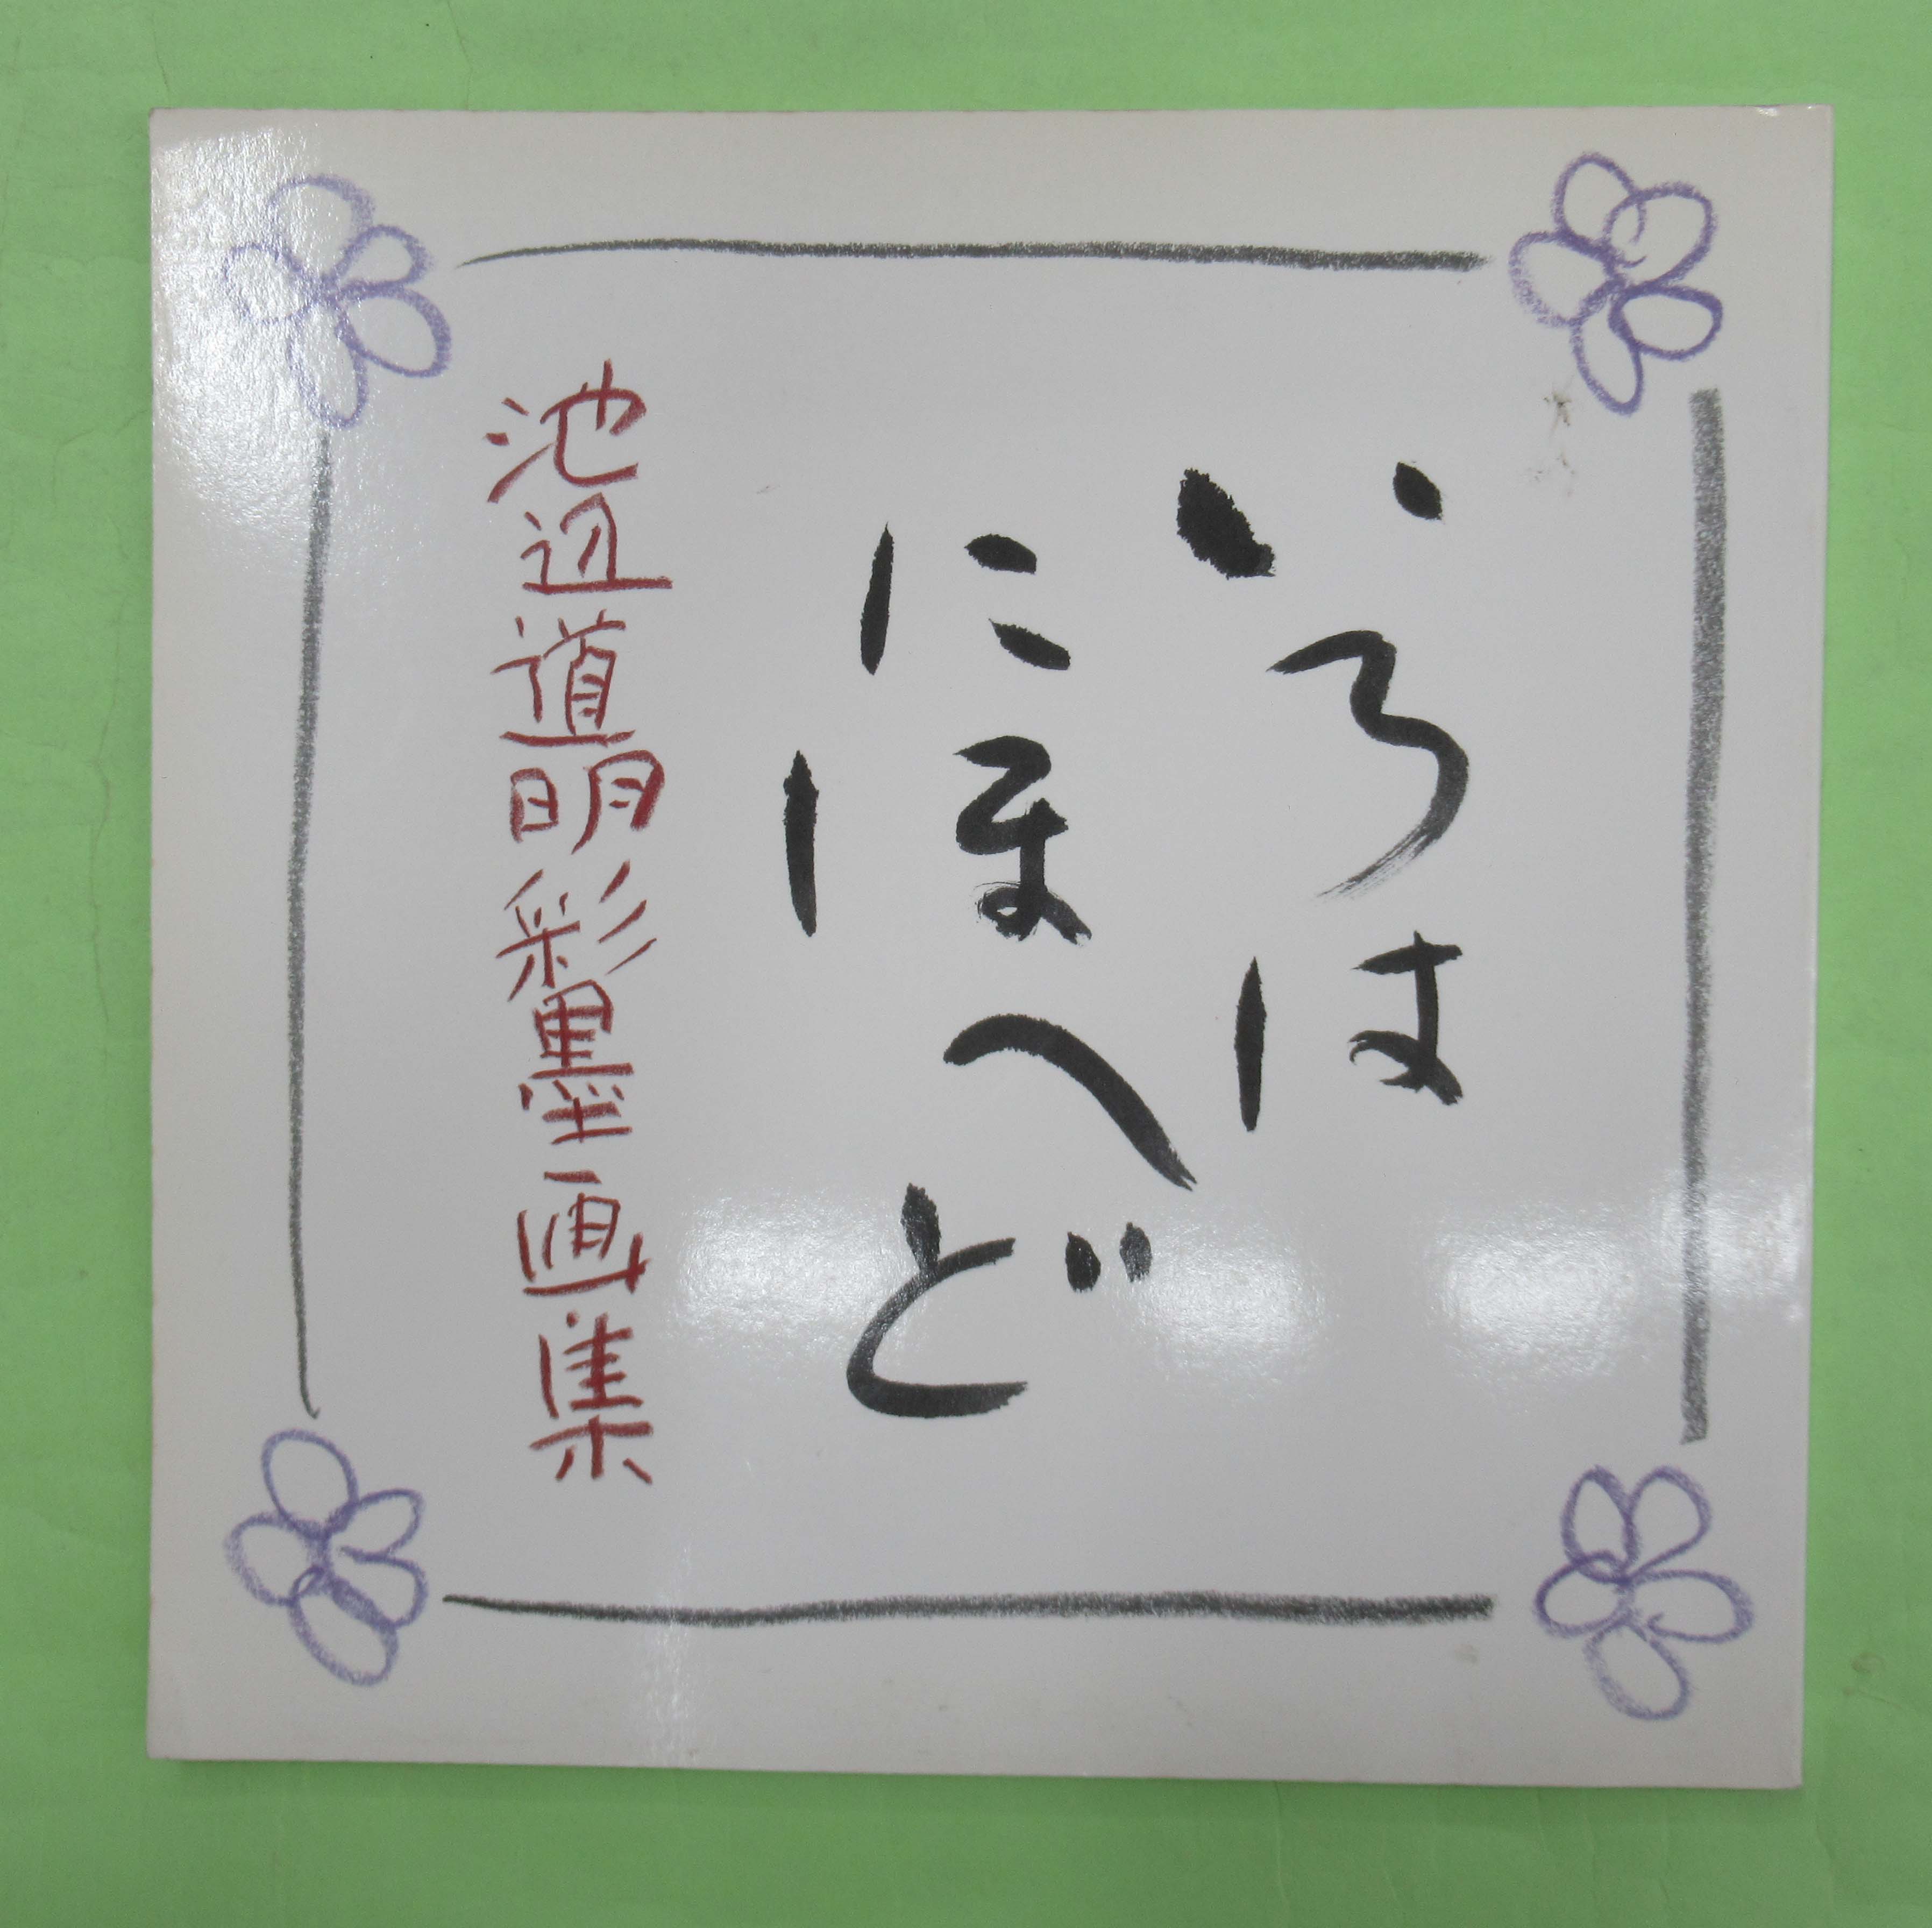 いろは
にほへど
池辺道明彩墨画集